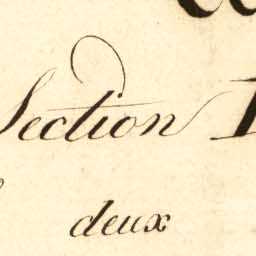 Section
deux